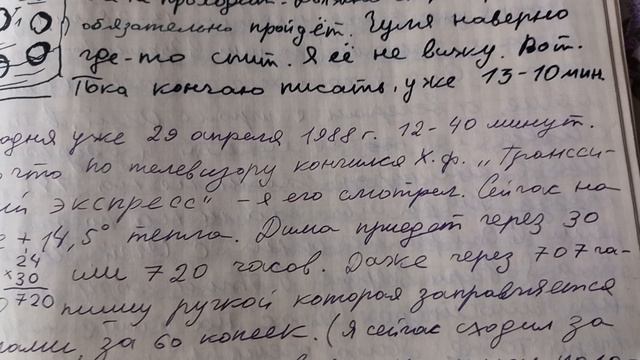 обязательно пройдёт. Гуля наверно
где-то спит. Я её не вижу. Вот.
Пока кончаю писать, уже 13-10 мин
одня уже 29 апреля 1988 г. 12-40 минут.
что по телевизору кончился Х.ф. „Трансси-
ий экспресс" - я его смотрел. Сейчас на
е +14,5° тепла. Дима приедет через 30
24
×30
720
или 720 часов. Даже через 707 ча-
пишу ручкой которая заправляется
ами, за 60 копеек. (Я сейчас сходил за